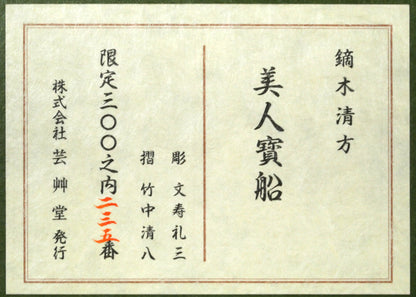 鏑木清方
美人寳船
彫 文寿礼三
摺 竹中清八
限定三〇〇之内二三五番
株式会社 芸艸堂 発行